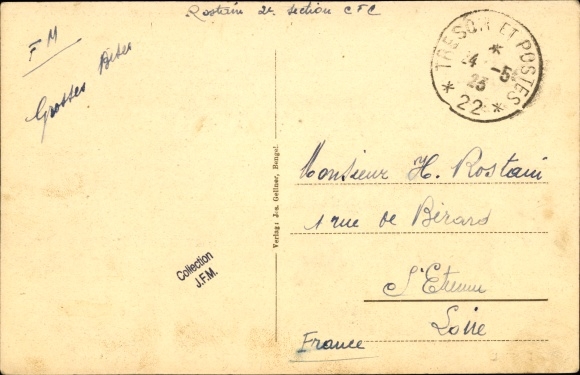 Rostain 2e section CFC
FM
Grosses Bises
TRESOR ET POSTES
24 -5
23
* 22 *
Verlag: Jos. Gellner, Bengel.
Monsieur H. Rostain
1 rue de Bérard
St Etienne
Loire
France
Collection
J.F.M.